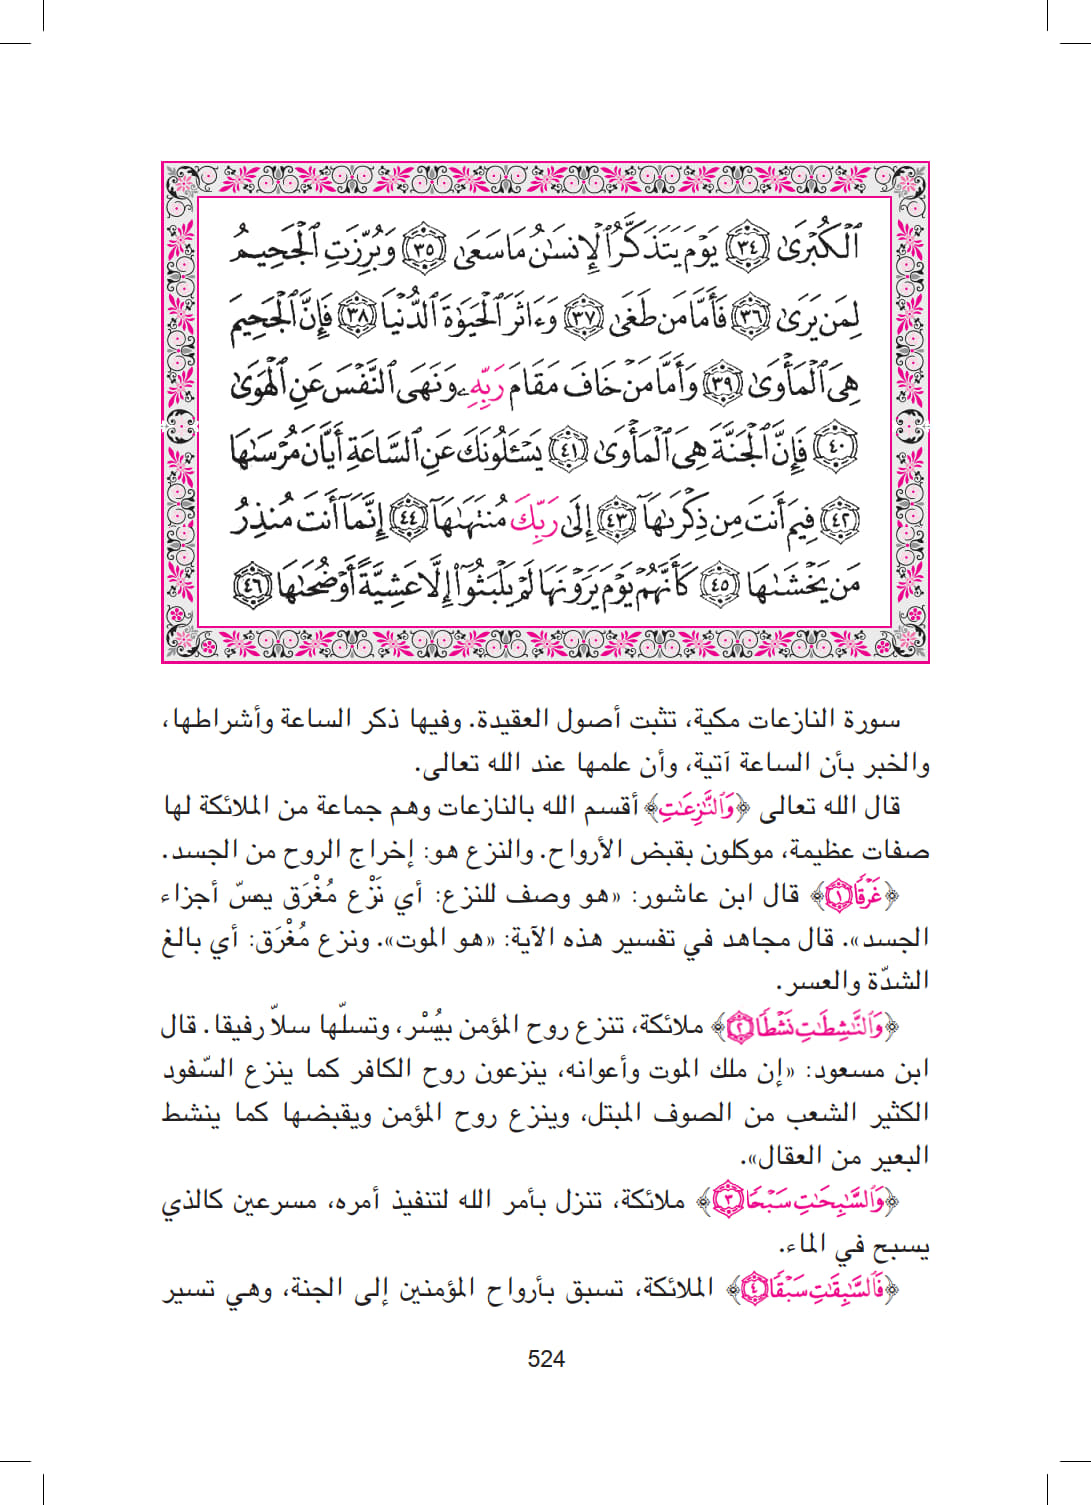 ٱلۡكُبۡرَىٰ ٣٤ يَوۡمَ يَتَذَكَّرُ ٱلۡإِنسَٰنُ مَا سَعَىٰ ٣٥ وَبُرِّزَتِ ٱلۡجَحِيمُ
لِمَن يَرَىٰ ٣٦ فَأَمَّا مَن طَغَىٰ ٣٧ وَءَاثَرَ ٱلۡحَيَوٰةَ ٱلدُّنۡيَا ٣٨ فَإِنَّ ٱلۡجَحِيمَ
هِيَ ٱلۡمَأۡوَىٰ ٣٩ وَأَمَّا مَنۡ خَافَ مَقَامَ رَبِّهِۦ وَنَهَى ٱلنَّفۡسَ عَنِ ٱلۡهَوَىٰ
٤٠ فَإِنَّ ٱلۡجَنَّةَ هِيَ ٱلۡمَأۡوَىٰ ٤١ يَسۡـَٔلُونَكَ عَنِ ٱلسَّاعَةِ أَيَّانَ مُرۡسَىٰهَا
٤٢ فِيمَ أَنتَ مِن ذِكۡرَىٰهَآ ٤٣ إِلَىٰ رَبِّكَ مُنتَهَىٰهَآ ٤٤ إِنَّمَآ أَنتَ مُنذِرُ
مَن يَخۡشَىٰهَا ٤٥ كَأَنَّهُمۡ يَوۡمَ يَرَوۡنَهَا لَمۡ يَلۡبَثُوٓاْ إِلَّا عَشِيَّةً أَوۡ ضُحَىٰهَا ٤٦
سورة النازعات مكية، تثبت أصول العقيدة. وفيها ذكر الساعة وأشراطها،
والخبر بأن الساعة آتية، وأن علمها عند الله تعالى.
قال الله تعالى ﴿وَٱلنَّٰزِعَٰتِ﴾ أقسم الله بالنازعات وهم جماعة من الملائكة لها
صفات عظيمة، موكلون بقبض الأرواح. والنزع هو: إخراج الروح من الجسد.
﴿غَرۡقٗا ١﴾ قال ابن عاشور: «هو وصف للنزع: أي نَزْع مُغْرَق يمسّ أجزاء
الجسد». قال مجاهد في تفسير هذه الآية: «هو الموت». ونزع مُغْرَق: أي بالغ
الشدّة والعسر.
﴿وَٱلنَّٰشِطَٰتِ نَشۡطٗا ٢﴾ ملائكة، تنزع روح المؤمن بيُسْر، وتسلّها سلاّ رفيقا. قال
ابن مسعود: «إن ملك الموت وأعوانه، ينزعون روح الكافر كما ينزع السّفود
الكثير الشعب من الصوف المبتل، وينزع روح المؤمن ويقبضها كما ينشط
البعير من العقال».
﴿وَٱلسَّٰبِحَٰتِ سَبۡحٗا ٣﴾ ملائكة، تنزل بأمر الله لتنفيذ أمره، مسرعين كالذي
يسبح في الماء.
﴿فَٱلسَّٰبِقَٰتِ سَبۡقٗا ٤﴾ الملائكة، تسبق بأرواح المؤمنين إلى الجنة، وهي تسير
524